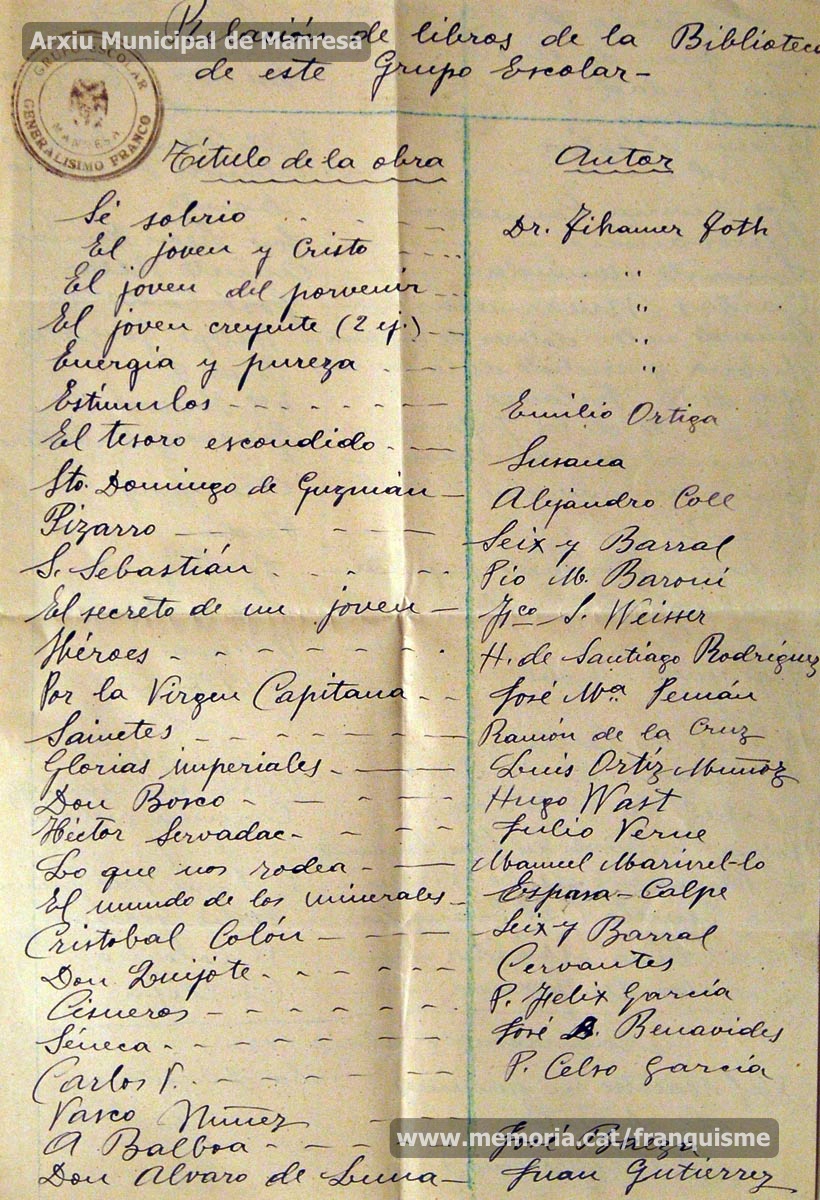 Arxiu Municipal de Manresa
Relación de libros de la Biblioteca
de este Grupo Escolar-
GRUPO ESCOLAR
GENERALISIMO FRANCO
MANRESA
Título de la obra Autor
Sé sobrio Dr. Tihamer Toth
El joven y Cristo "
El joven del porvenir "
El joven creyente (2 ej.) "
Energía y pureza "
Estímulos Emilio Ortiga
El tesoro escondido Susana
Sto. Domingo de Guzmán Alejandro Coll
Pizarro Seix y Barral
S. Sebastián Pío M. Baroni
El secreto de un joven Fco S. Weisser
Héroes H. de Santiago Rodríguez
Por la Virgen Capitana José Mª Pemán
Sainetes Ramón de la Cruz
Glorias imperiales Luis Ortíz Muñoz
Don Bosco Hugo Wast
Héctor Servadac Julio Verne
Lo que nos rodea Manuel Marinel-lo
El mundo de los minerales Espasa-Calpe
Cristobal Colón Seix y Barral
Don Quijote Cervantes
Cisneros P. Felix García
Séneca José B. Benavides
Carlos V. P. Celso García
Vasco Núñez
A Balboa José
Don Alvaro de Luna Juan Gutiérrez
www.memoria.cat/franquisme